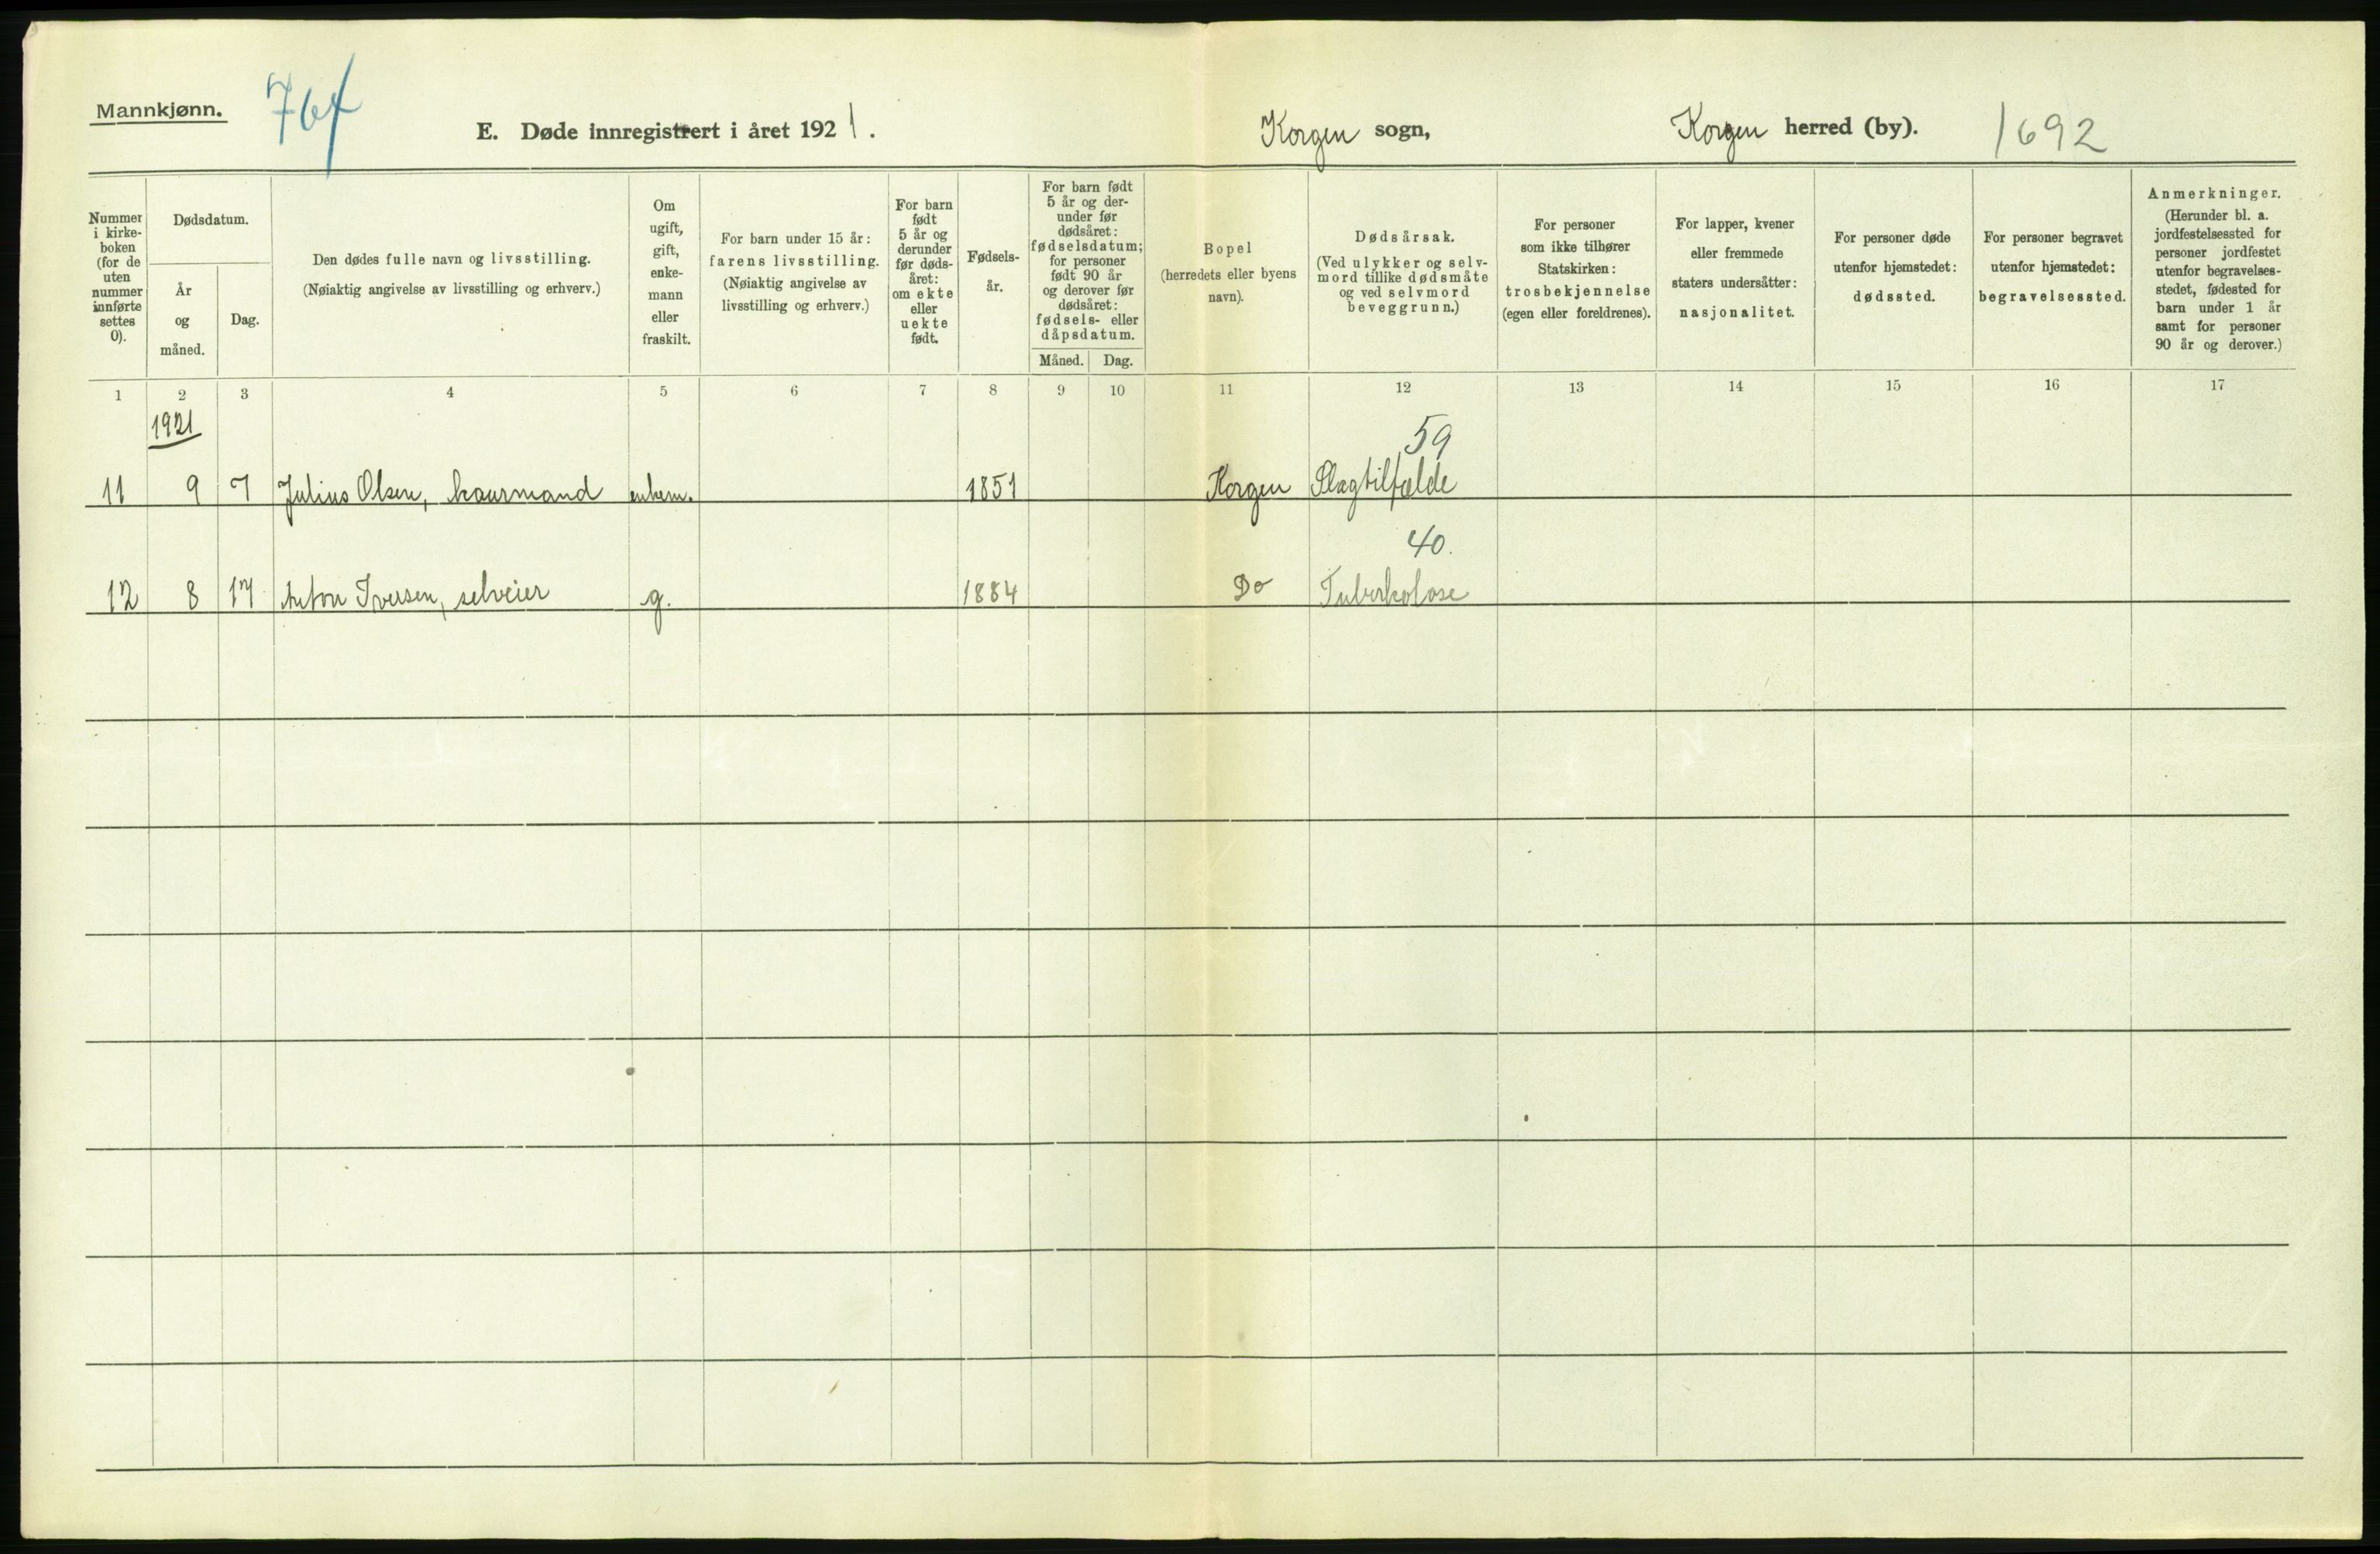 Mannkjønn.
764
E. Døde innregistrert i året 1921.
Korgen sogn,
Korgen herred (by).
1692
Nummer i kirke-boken (for de uten nummer innførte settes 0).
Dødsdatum.
År og måned.
Dag.
Den dødes fulle navn og livsstilling.
(Nøiaktig angivelse av livsstilling og erhverv.)
Om ugift, gift, enke-mann eller fraskilt.
For barn under 15 år: farens livsstilling.
(Nøiaktig angivelse av livsstilling og erhverv.)
For barn født 5 år og derunder før døds-året: om ekte eller uekte født.
Fødsels-år.
For barn født 5 år og der-under før dødsåret: fødselsdatum; for personer født 90 år og derover før dødsåret: fødsels- eller dåpsdatum.
Måned. Dag.
Bopel
(herredets eller byens navn).
Dødsårsak.
(Ved ulykker og selv-mord tillike dødsmåte og ved selvmord beveggrunn.)
For personer som ikke tilhører Statskirken: trosbekjennelse (egen eller foreldrenes).
For lapper, kvener eller fremmede staters undersåtter: nasjonalitet.
For personer døde utenfor hjemstedet: dødssted.
For personer begravet utenfor hjemstedet: begravelsessted.
Anmerkninger.
(Herunder bl. a. jordfestelsessted for personer jordfestet utenfor begravelses-stedet, fødested for barn under 1 år samt for personer 90 år og derover.)
1 2 3 4 5 6 7 8 9 10 11 12 13 14 15 16 17
1921
59
11 9 7 Julius Olsen, kaarmand enkem. 1851 Korgen Slagtilfælde
40.
12 8 17 Anton Iversen, selveier g. 1884 Do Tuberkolose